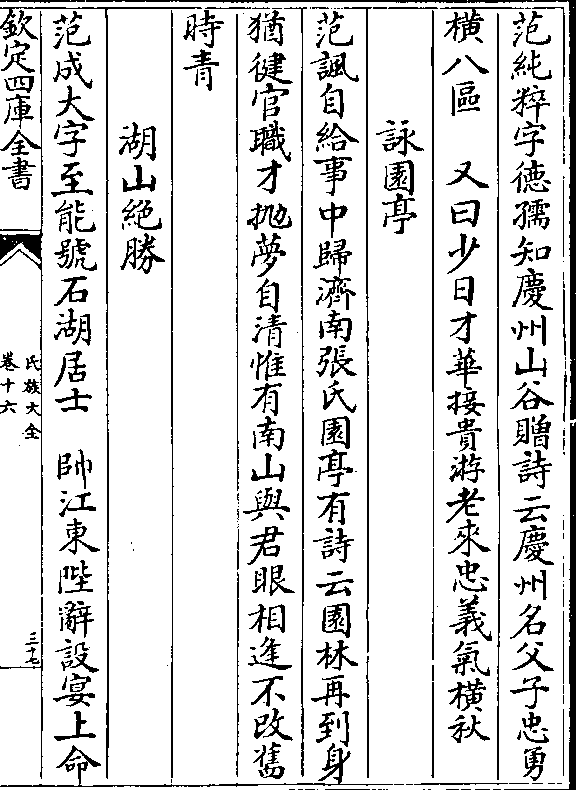 范純粹字德孺知慶州山谷贈詩云慶州名父子忠勇
橫八區　又曰少日才華接貴游老來忠義氣橫秋
詠園亭
范諷自給事中歸濟南張氏園亭有詩云園林再到身
猶健官職才拋夢自清惟有南山與君眼相逢不改舊
時青
湖山絶勝
范成大字至能號石湖居士　帥江東陛辭設宴上命
欽定四庫全書
氏族大全
卷十六
三十七